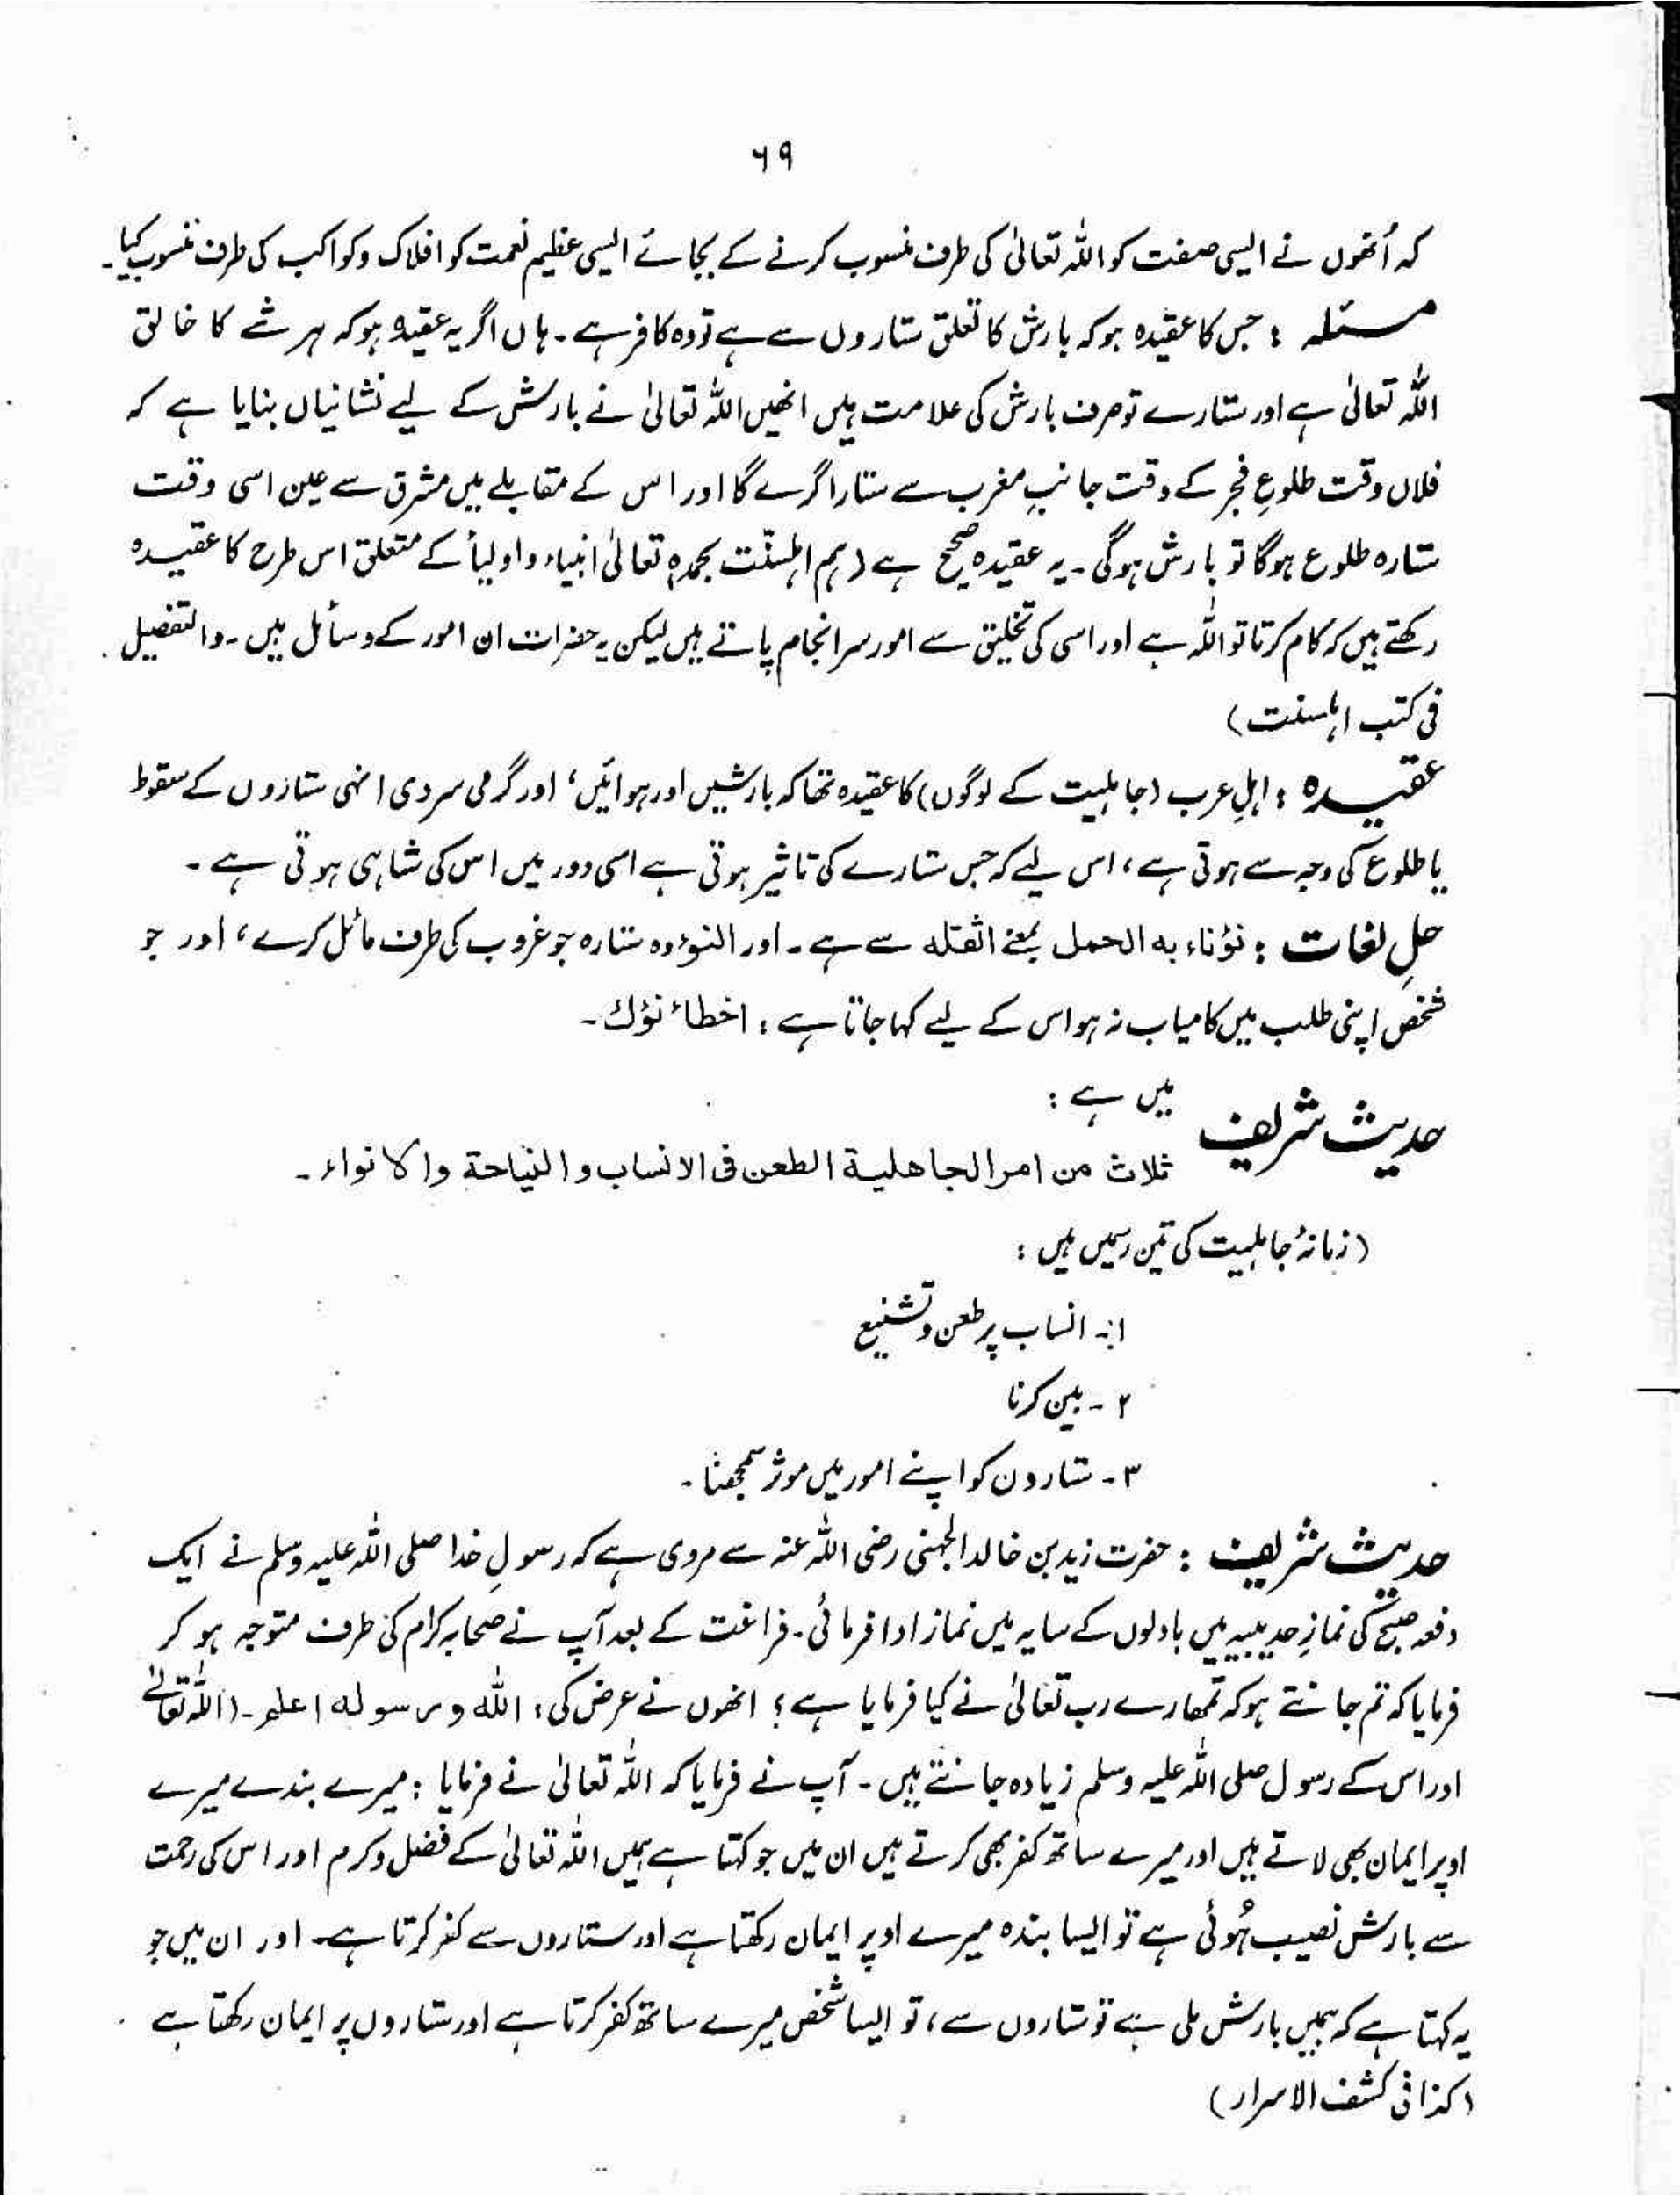 ۶۹
کہ اُنھوں نے ایسی صفت کو اللہ تعالیٰ کی طرف منسوب کرنے کے بجائے ایسی عظیم نعمت کو افلاک و کواکب کی طرف منسوب کیا۔
مسئلہ : جس کا عقیدہ ہو کہ بارش کا تعلق ستاروں سے ہے تو وہ کافر ہے۔ ہاں اگر یہ عقیدہ ہو کہ ہر شے کا خالق
اللہ تعالیٰ ہے اور ستارے تو صرف بارش کی علامت ہیں انھیں اللہ تعالیٰ نے بارش کے لیے نشانیاں بنایا ہے کہ
فلاں وقت طلوعِ فجر کے وقت جانبِ مغرب سے ستارا گرے گا اور اس کے مقابلے میں مشرق سے عین اسی وقت
ستارہ طلوع ہوگا تو بارش ہوگی۔ یہ عقیدہ صحیح ہے (ہم اہلسنّت بحمدہٖ تعالیٰ انبیاء و اولیأ کے متعلق اس طرح کا عقیدہ
رکھتے ہیں کہ کام کرتا تو اللہ ہے اور اسی کی تخلیق سے امور سرانجام پاتے ہیں لیکن یہ حضرات ان امور کے وسائل ہیں۔ والتفصیل
فی کتب اہلسنت)
عقیدہ : اہلِ عرب (جاہلیت کے لوگوں) کا عقیدہ تھا کہ بارشیں اور ہوائیں، اور گرمی سردی انہی ستاروں کے سقوط
یا طلوع کی وجہ سے ہوتی ہے، اس لیے کہ جس ستارے کی تاثیر ہوتی ہے اسی دور میں اس کی شاہی ہوتی ہے۔
حلِ لغات : نؤناء بہ الحمل بمعنے اثقلہ سے ہے۔ اور النوء وہ ستارہ جو غروب کی طرف مائل کرے، اور جو
شخص اپنی طلب میں کامیاب نہ ہو اس کے لیے کہا جاتا ہے : اخطاء نؤك۔
حدیث شریف میں ہے :
ثلاث من امر الجاهلية الطعن فی الانساب و النياحة والانواء۔
(زمانۂ جاہلیت کی تین رسمیں ہیں :
۱۔ انساب پر طعن و تشنیع
۲۔ بین کرنا
۳۔ ستاروں کو اپنے امور میں موثر سمجھنا۔
حدیث شریف : حضرت زید بن خالد الجہنی رضی اللہ عنہ سے مروی ہے کہ رسولِ خدا صلی اللہ علیہ وسلم نے ایک
دفعہ صبح کی نمازِ حدیبیہ میں بادلوں کے سایہ میں نماز ادا فرمائی۔ فراغت کے بعد آپ نے صحابہ کرام کی طرف متوجہ ہو کر
فرمایا کہ تم جانتے ہو کہ تمھارے رب تعالیٰ نے کیا فرمایا ہے؟ انھوں نے عرض کی: الله ورسوله اعلم۔ (اللہ تعالےٰ
اور اس کے رسول صلی اللہ علیہ وسلم زیادہ جانتے ہیں۔ آپ نے فرمایا کہ اللہ تعالیٰ نے فرمایا : میرے بندے میرے
اوپر ایمان بھی لاتے ہیں اور میرے ساتھ کفر بھی کرتے ہیں ان میں جو کہتا ہے ہمیں اللہ تعالیٰ کے فضل و کرم اور اس کی رحمت
سے بارش نصیب ہُوئی ہے تو ایسا بندہ میرے اوپر ایمان رکھتا ہے اور ستاروں سے کفر کرتا ہے۔ اور ان میں جو
یہ کہتا ہے کہ ہمیں بارش ملی ہے تو ستاروں سے، تو ایسا شخص میرے ساتھ کفر کرتا ہے اور ستاروں پر ایمان رکھتا ہے
(کذا فی کشف الاسرار)